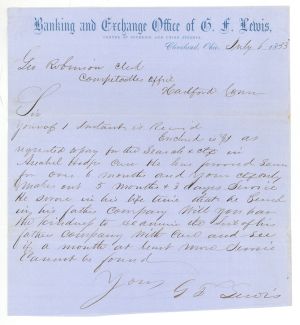 Banking and Exchange Office of G. F. Lewis,
CORNER OF SUPERIOR AND UNION STREETS.
Cleveland, Ohio, July 6 1853
Geo Robinson Clerk
Comptrollers Office
Hartford Conn
Sir
Your of 1 Instant is Recevd
Enclosed is $1 as
requested to pay for the Search & c
in
Case He have proved Same
for over 6 months and your
makes out 5 months & 3 days Service
He swore in his life time that he Served
in his father Company Will you have
the kindness to examine the of his
father Company With Care and see
if a month at least more Service
Cannot be found
Yours
G F Lewis